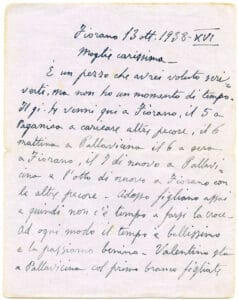 Fiorano 13 ott. 1938-XVI
Moglie carissima -
È un pezzo che avrei voluto scri-
verti, ma non ho un momento di tempo.
Il gi. 4 venni qui a Fiorano, il 5 a
a caricare altre pecore, il 6
mattina a Pallavicina il 6 a sera
a Fiorano, il 7 di nuovo a Pallavi-
cina e l'otto di nuovo a Fiorano con
le altre pecore - Adesso figliano assai
e quindi non c'è tempo a farsi la croce -
Ad ogni modo il tempo è bellissimo
e la passiamo benino - Valentino sta
a Pallavicina col primo branco figliate